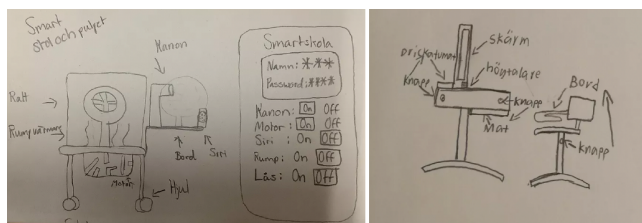 Smart
stol och pulpet
Kanon
Ratt
Rumpvärmare
Motor
Bord
Siri
Hjul
Smartskola
Namn: ***
Password: ***
Kanon: On Off
Motor: On Off
Siri: On Off
Rump: On Off
Lås: On Off
skärm
högtalare
knapp
knapp
Mat
Bord
knapp